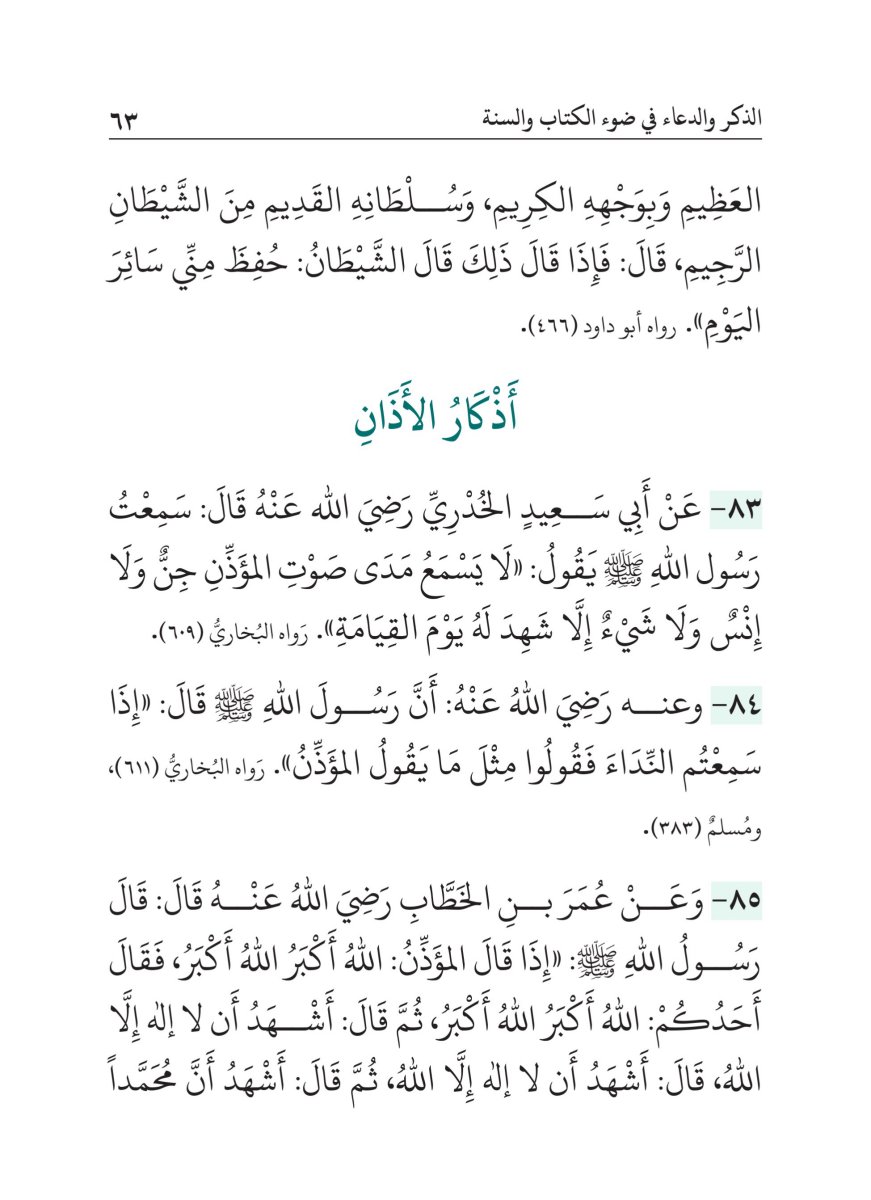 الذكر والدعاء في ضوء الكتاب والسنة ٦٣
العَظِيمِ وَبِوَجْهِهِ الكِرِيمِ، وَسُـــلْطَانِهِ القَدِيمِ مِنَ الشَّيْطَانِ
الرَّجِيمِ، قَالَ: فَإِذَا قَالَ ذَلِكَ قَالَ الشَّيْطَانُ: حُفِظَ مِنِّي سَائِرَ
اليَوْمِ». رواه أبو داود (٤٦٦).
أَذْكَارُ الأَذَانِ
٨٣- عَنْ أَبِي سَـــعِيدٍ الخُدْرِيِّ رَضِيَ الله عَنْهُ قَالَ: سَمِعْتُ
رَسُول اللهِ ﷺ يَقُولُ: «لَا يَسْمَعُ مَدَى صَوْتِ المؤَذِّنِ جِنٌّ وَلَا
إِنْسٌ وَلَا شَيْءٌ إِلَّا شَهِدَ لَهُ يَوْمَ القِيَامَةِ». رَواه البُخاريُّ (٦٠٩).
٨٤- وعنـــه رَضِيَ اللهُ عَنْهُ: أَنَّ رَسُـــولَ اللهِ ﷺ قَالَ: «إِذَا
سَمِعْتُم النِّدَاءَ فَقُولُوا مِثْلَ مَا يَقُولُ المؤَذِّنُ». رَواه البُخاريُّ (٦١١)،
ومُسلمٌ (٣٨٣).
٨٥- وَعَـــنْ عُمَرَ بـــنِ الخَطَّابِ رَضِيَ اللهُ عَنْـــهُ قَالَ: قَالَ
رَسُـــولُ اللهِ ﷺ: «إِذَا قَالَ المؤَذِّنُ: اللهُ أَكْبَرُ اللهُ أَكْبَرُ، فَقَالَ
أَحَدُكُمْ: اللهُ أَكْبَرُ اللهُ أَكْبَرُ، ثُمَّ قَالَ: أَشْـــهَدُ أَن لا إلٰه إِلَّا
اللهُ، قَالَ: أَشْهَدُ أَن لا إلٰه إِلَّا اللهُ، ثُمَّ قَالَ: أَشْهَدُ أَنَّ مُحَمَّداً